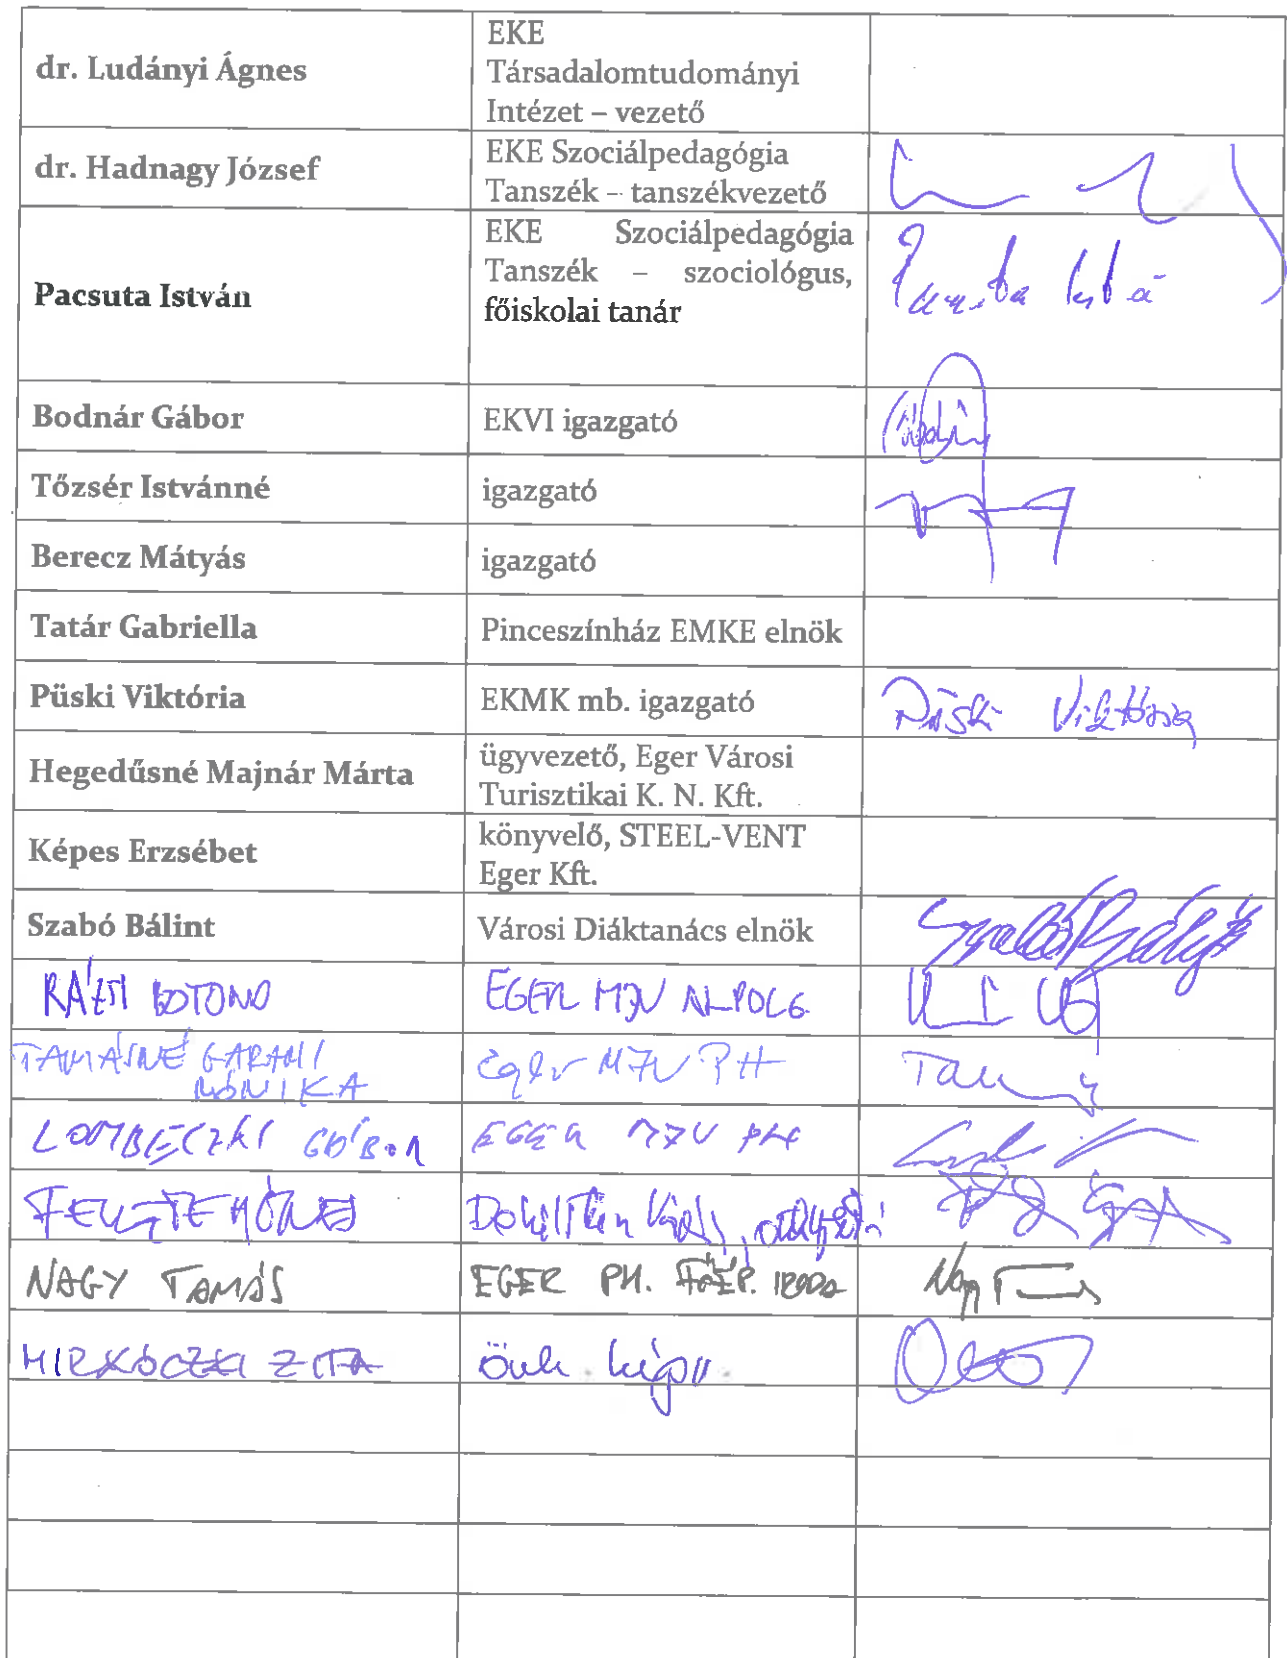 dr. Ludányi Ágnes
EKE
Társadalomtudományi
Intézet – vezető
dr. Hadnagy József
EKE Szociálpedagógia
Tanszék – tanszékvezető
Pacsuta István
EKE Szociálpedagógia
Tanszék – szociológus,
főiskolai tanár
Bodnár Gábor
EKVI igazgató
Tőzsér Istvánné
igazgató
Berecz Mátyás
igazgató
Tatár Gabriella
Pinceszínház EMKE elnök
Püski Viktória
EKMK mb. igazgató
Püski Viktória
Hegedűsné Majnár Márta
ügyvezető, Eger Városi
Turisztikai K. N. Kft.
Képes Erzsébet
könyvelő, STEEL-VENT
Eger Kft.
Szabó Bálint
Városi Diáktanács elnök
Szabó Bálint
EGER MJV ALPOLG.
TAMÁSNÉ GARAMI
MÓNIKA
Eger MJV PH
LOMBECZKI GÁBOR
EGER MJV PH
NAGY TAMÁS
EGER PH. FŐÉP. IRODA
Nagy
MIRKÓCZKI ZITA
önk. képv.